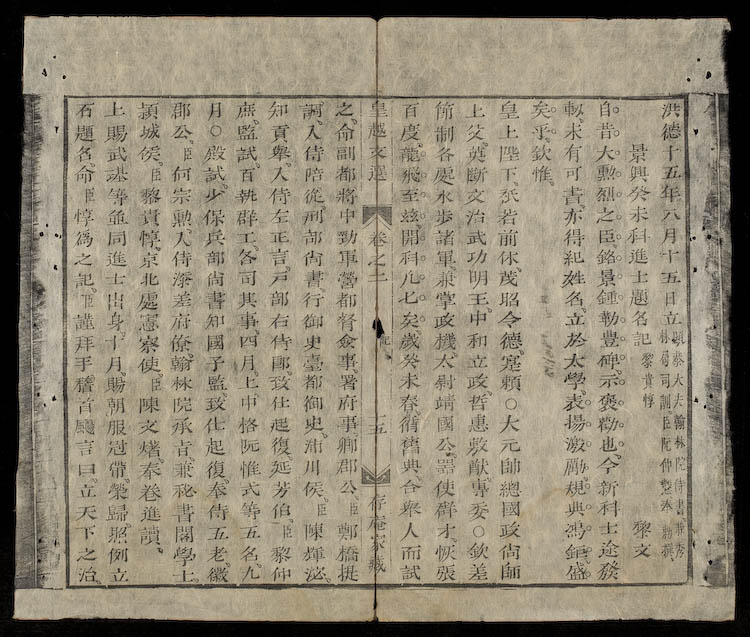 洪德十五年八月十五日立
顯恭大夫翰林院侍書兼秀
林局司訓臣阮仲𢡟奉勅撰
景興癸未科進士題名記
黎貴惇
黎文
自昔大勲烈之臣銘景鍾勒豊碑示褒勸也今新科士途發
軔未有可書亦得紀姓名立於太學表揚激勵規典鴻鉅盛
矣乎欽惟
皇上陛下丕若前休茂昭令德寔頼○大元帥總國政尚師
上父英斷文治武功明王中和立政哲惠敷猷專委○欽差
節制各處水步諸軍兼掌政機太尉靖國公噐使群才恢張
百度龍飛至兹開科凢七矣歲癸未春循舊典合衆人而試
皇越文選
卷之二
記
五
存庵家藏
之命副都將中勁軍營都督僉事署府事卿郡公臣鄭橋提
調入侍陪從刑部尚書行御史臺都御史沛川侯臣陳輝泌
知貢舉入侍左正言戸部右侍郎致仕起復延芳伯臣黎仲
庶監試百執群工各司其事四月上中格阮惟式等五名九
月○殿試少保兵部尚書知國子監致仕起復奉侍五老徽
郡公臣何宗勲入侍添差府僚翰林院承旨兼秘書閣學士
頴城侯臣黎貴惇京北處憲察使臣陳文㷆奉卷進讀
上賜武諶等並同進士出身十月賜朝服冠帶榮歸照例立
石題名命臣惇爲之記臣謹拜手稽首颺言曰立天下之治